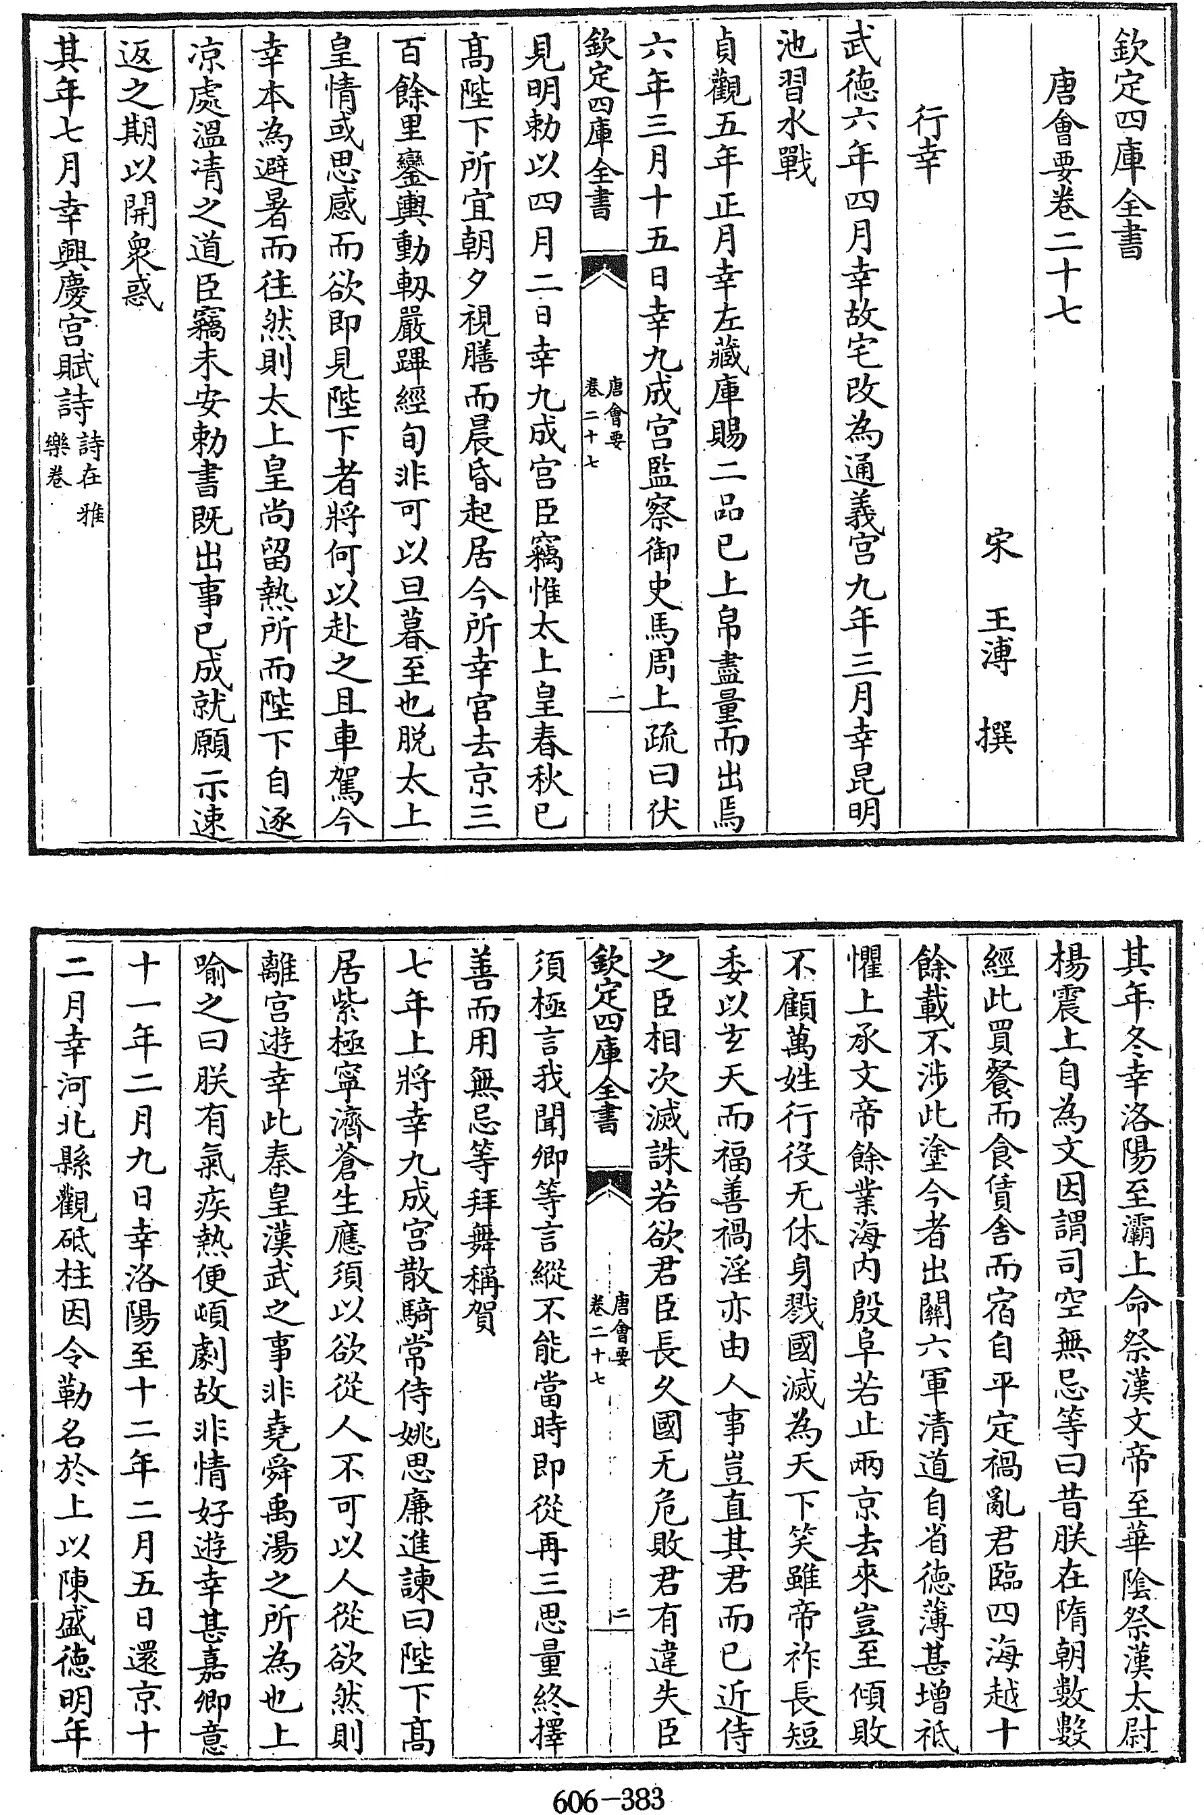 欽定四庫全書
唐會要卷二十七
宋　王溥　撰
行幸
武德六年四月幸故宅改為通義宫九年三月幸昆明
池習水戰
貞觀五年正月幸左藏庫賜二品已上帛盡量而出焉
六年三月十五日幸九成宫監察御史馬周上疏曰伏
欽定四庫全書
唐會要
卷二十七
一
見明勅以四月二日幸九成宫臣竊惟太上皇春秋已
髙陛下所宜朝夕視膳而晨昏起居今所幸宫去京三
百餘里鑾輿動軔嚴蹕經旬非可以旦暮至也脱太上
皇情或思感而欲即見陛下者將何以赴之且車駕今
幸本為避暑而往然則太上皇尚留熱所而陛下自逐
凉處温凊之道臣竊未安勅書既出事已成就願示速
返之期以開衆惑
其年七月幸興慶宫賦詩詩在雅
樂卷
其年冬幸洛陽至灞上命祭漢文帝至華陰祭漢太尉
楊震上自為文因謂司空無忌等曰昔朕在隋朝數數
經此買餐而食賃舍而宿自平定禍亂君臨四海越十
餘載不涉此塗今者出關六軍清道自省德薄甚增祗
懼上承文帝餘業海内殷阜若止兩京去來豈至傾敗
不顧萬姓行役无休身戮國滅為天下笑雖帝祚長短
委以玄天而福善禍淫亦由人事豈直其君而已近侍
之臣相次滅誅若欲君臣長久國无危敗君有違失臣
欽定四庫全書
唐會要
卷二十七
二
須極言我聞卿等言縱不能當時即從再三思量終擇
善而用無忌等拜舞稱賀
七年上將幸九成宫散騎常侍姚思廉進諫曰陛下髙
居紫極寧濟蒼生應須以欲從人不可以人從欲然則
離宫遊幸此秦皇漢武之事非堯舜禹湯之所為也上
喻之曰朕有氣疾熱便頓劇故非情好遊幸甚嘉卿意
十一年二月九日幸洛陽至十二年二月五日還京十
二月幸河北縣觀砥柱因令勒名於上以陳盛德明年
606-383